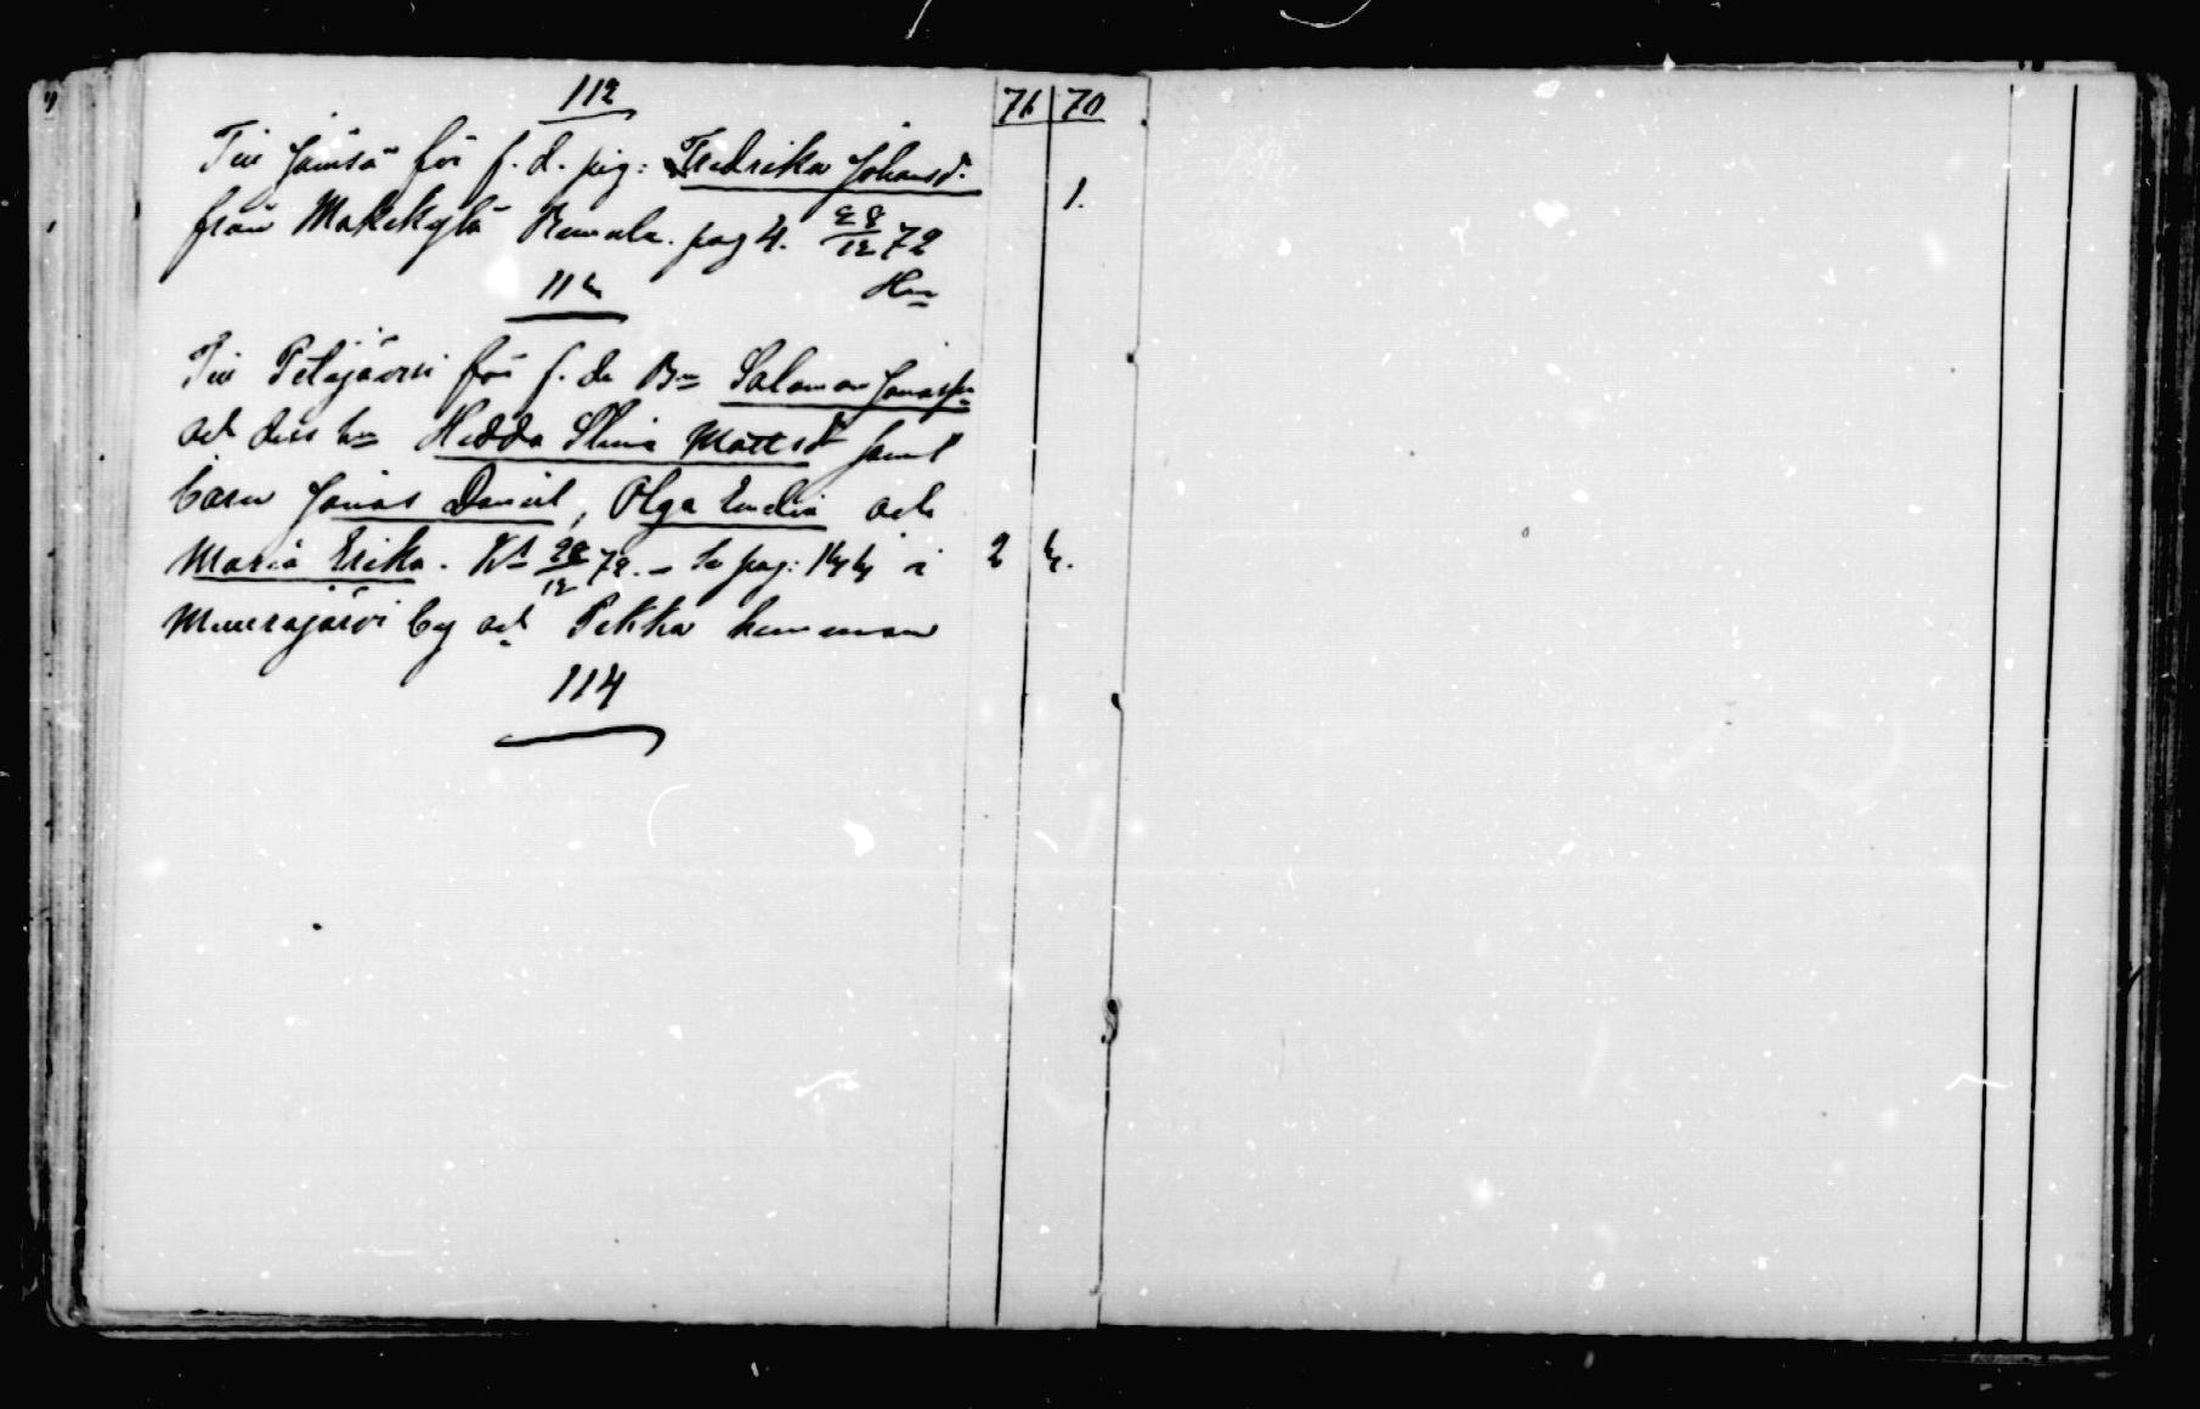 112
76 70
Till Jämsä för f. d. pig: Fredrika Johansd.
1.
från Makikylä Rumala. pag 4. 28/12 72
113
Till Petäjävesi för f. d. Bn Salomon Jonass
och dess h Hedda Stina Mattsd samt
barn Jonas Daniel, Olga Emelia och
Maria Erika. Kl 28/12 72. – Se pag: i 2 3.
Muurajärvi by och Pekka hemman
114